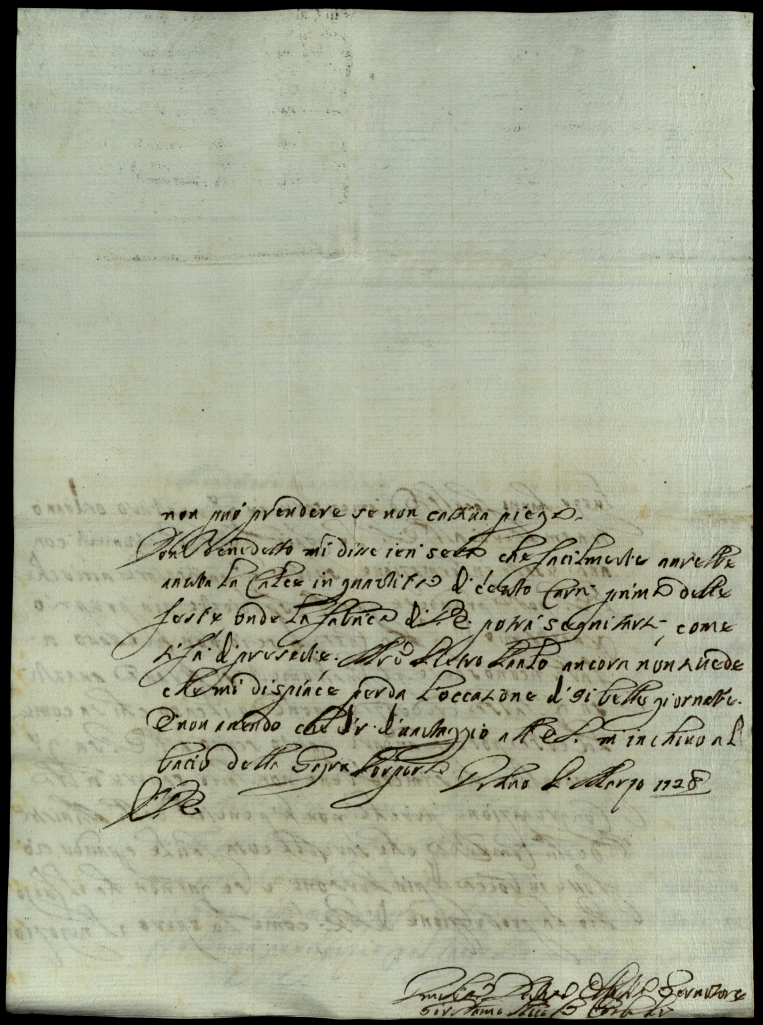 non può prendere se non cattiva piega.
Don Benedetto mi disse ieri sera che facilmente avrebbe
avuta la Calce in quantità di cento Carri prima delle
feste onde la fabrica di V.E. potrà seguitarsi, come
si fà di presente. Pietro Paolo ancora non si vede
che mi dispiace perda l'occazione di si belle giornate.
E non avendo che dir d'avantaggio all' E.S. m'inchino al
bacio della Sagra Porpora Marzo 1728
V.E.
Servitore